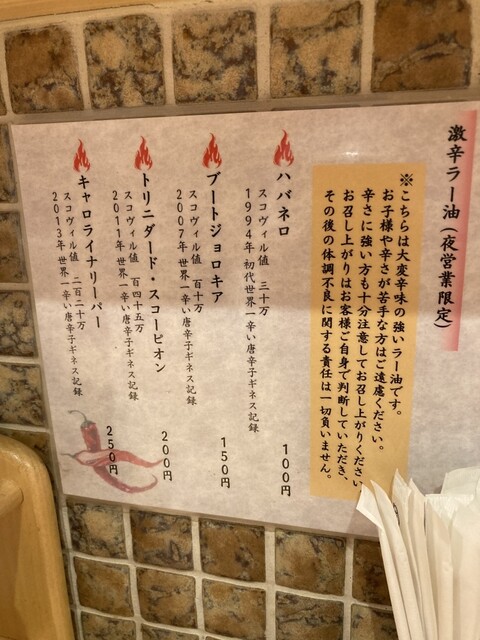 激辛ラー油(夜営業限定)
※こちらは大変辛味の強いラー油です。
お子様や辛さが苦手な方はご遠慮ください。
辛さに強い方も十分注意してお召し上がりください
お召し上がりはお客様ご自身で判断していただき、
その後の体調不良に関する責任は一切負いません。
ハバネロ
スコヴィル値 三十万
1994年 初代世界一辛い唐辛子ギネス記録
100円
ブートジョロキア
スコヴィル値 百十万
2007年世界一辛い唐辛子ギネス記録
150円
トリニダード・スコーピオン
スコヴィル値 百四十五万
2011年世界一辛い唐辛子ギネス記録
200円
キャロライナリーパー
スコヴィル値 二百二十万
2013年世界一辛い唐辛子ギネス記録
250円